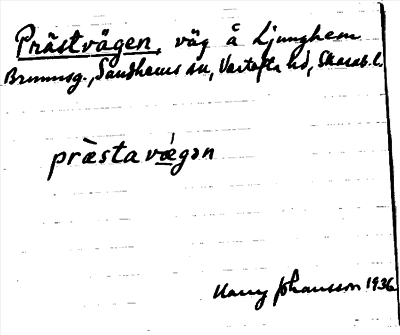 Prästvägen, väg å Ljunghem
Brunnsg., Sandhems sn, Vartofta hd, Skarab. l.
prὰsta vǽgən
Harry Johansson 1936